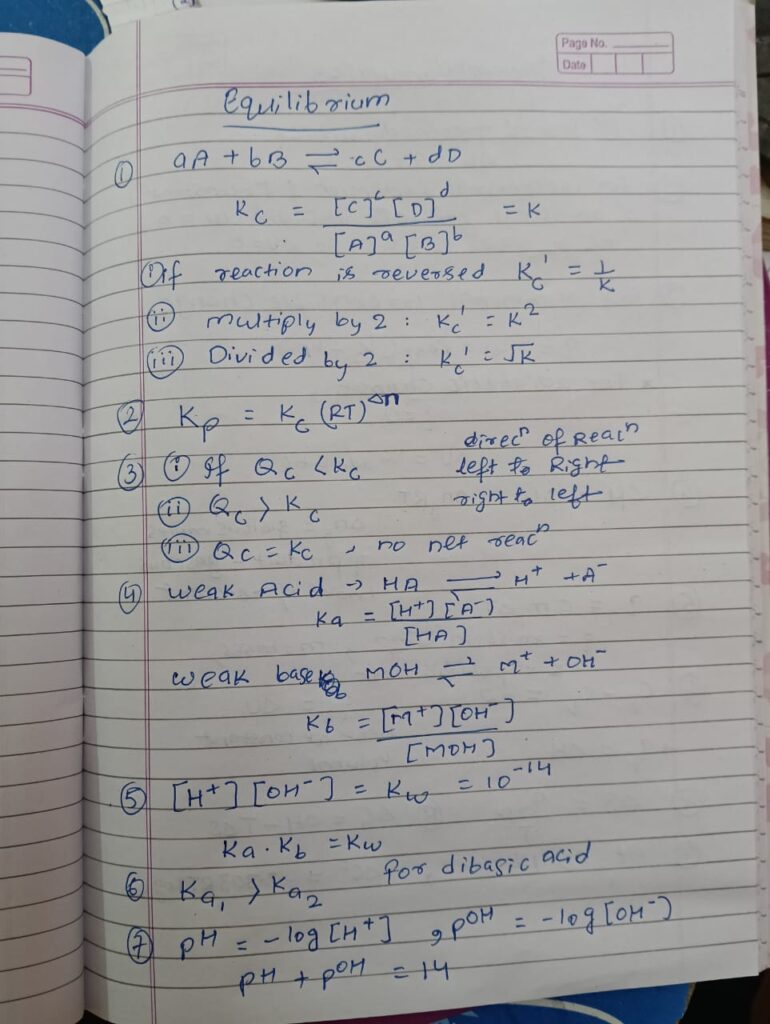 Page No.
Date
Equilibrium
① aA + bB ⇌ cC + dD
Kc = [C]^c [D]^d / [A]^a [B]^b = K
ⓘ If reaction is reversed Kc' = 1/K
ⓘⓘ multiply by 2 : Kc' = K²
ⓘⓘⓘ Divided by 2 : Kc' = √K
② Kp = Kc (RT)^Δn
direcⁿ of Reacⁿ
③ ⓘ If Qc < Kc left to Right
ⓘⓘ Qc > Kc right to left
ⓘⓘⓘ Qc = Kc , no net reacⁿ
④ weak Acid → HA ⇌ H⁺ + A⁻
Ka = [H⁺] [A⁻] / [HA]
weak base MOH ⇌ M⁺ + OH⁻
Kb = [M⁺] [OH⁻] / [MOH]
⑤ [H⁺] [OH⁻] = Kw = 10⁻¹⁴
Ka . Kb = Kw
⑥ Ka₁ > Ka₂ for dibasic acid
⑦ pH = -log [H⁺] , pOH = -log [OH⁻]
pH + pOH = 14